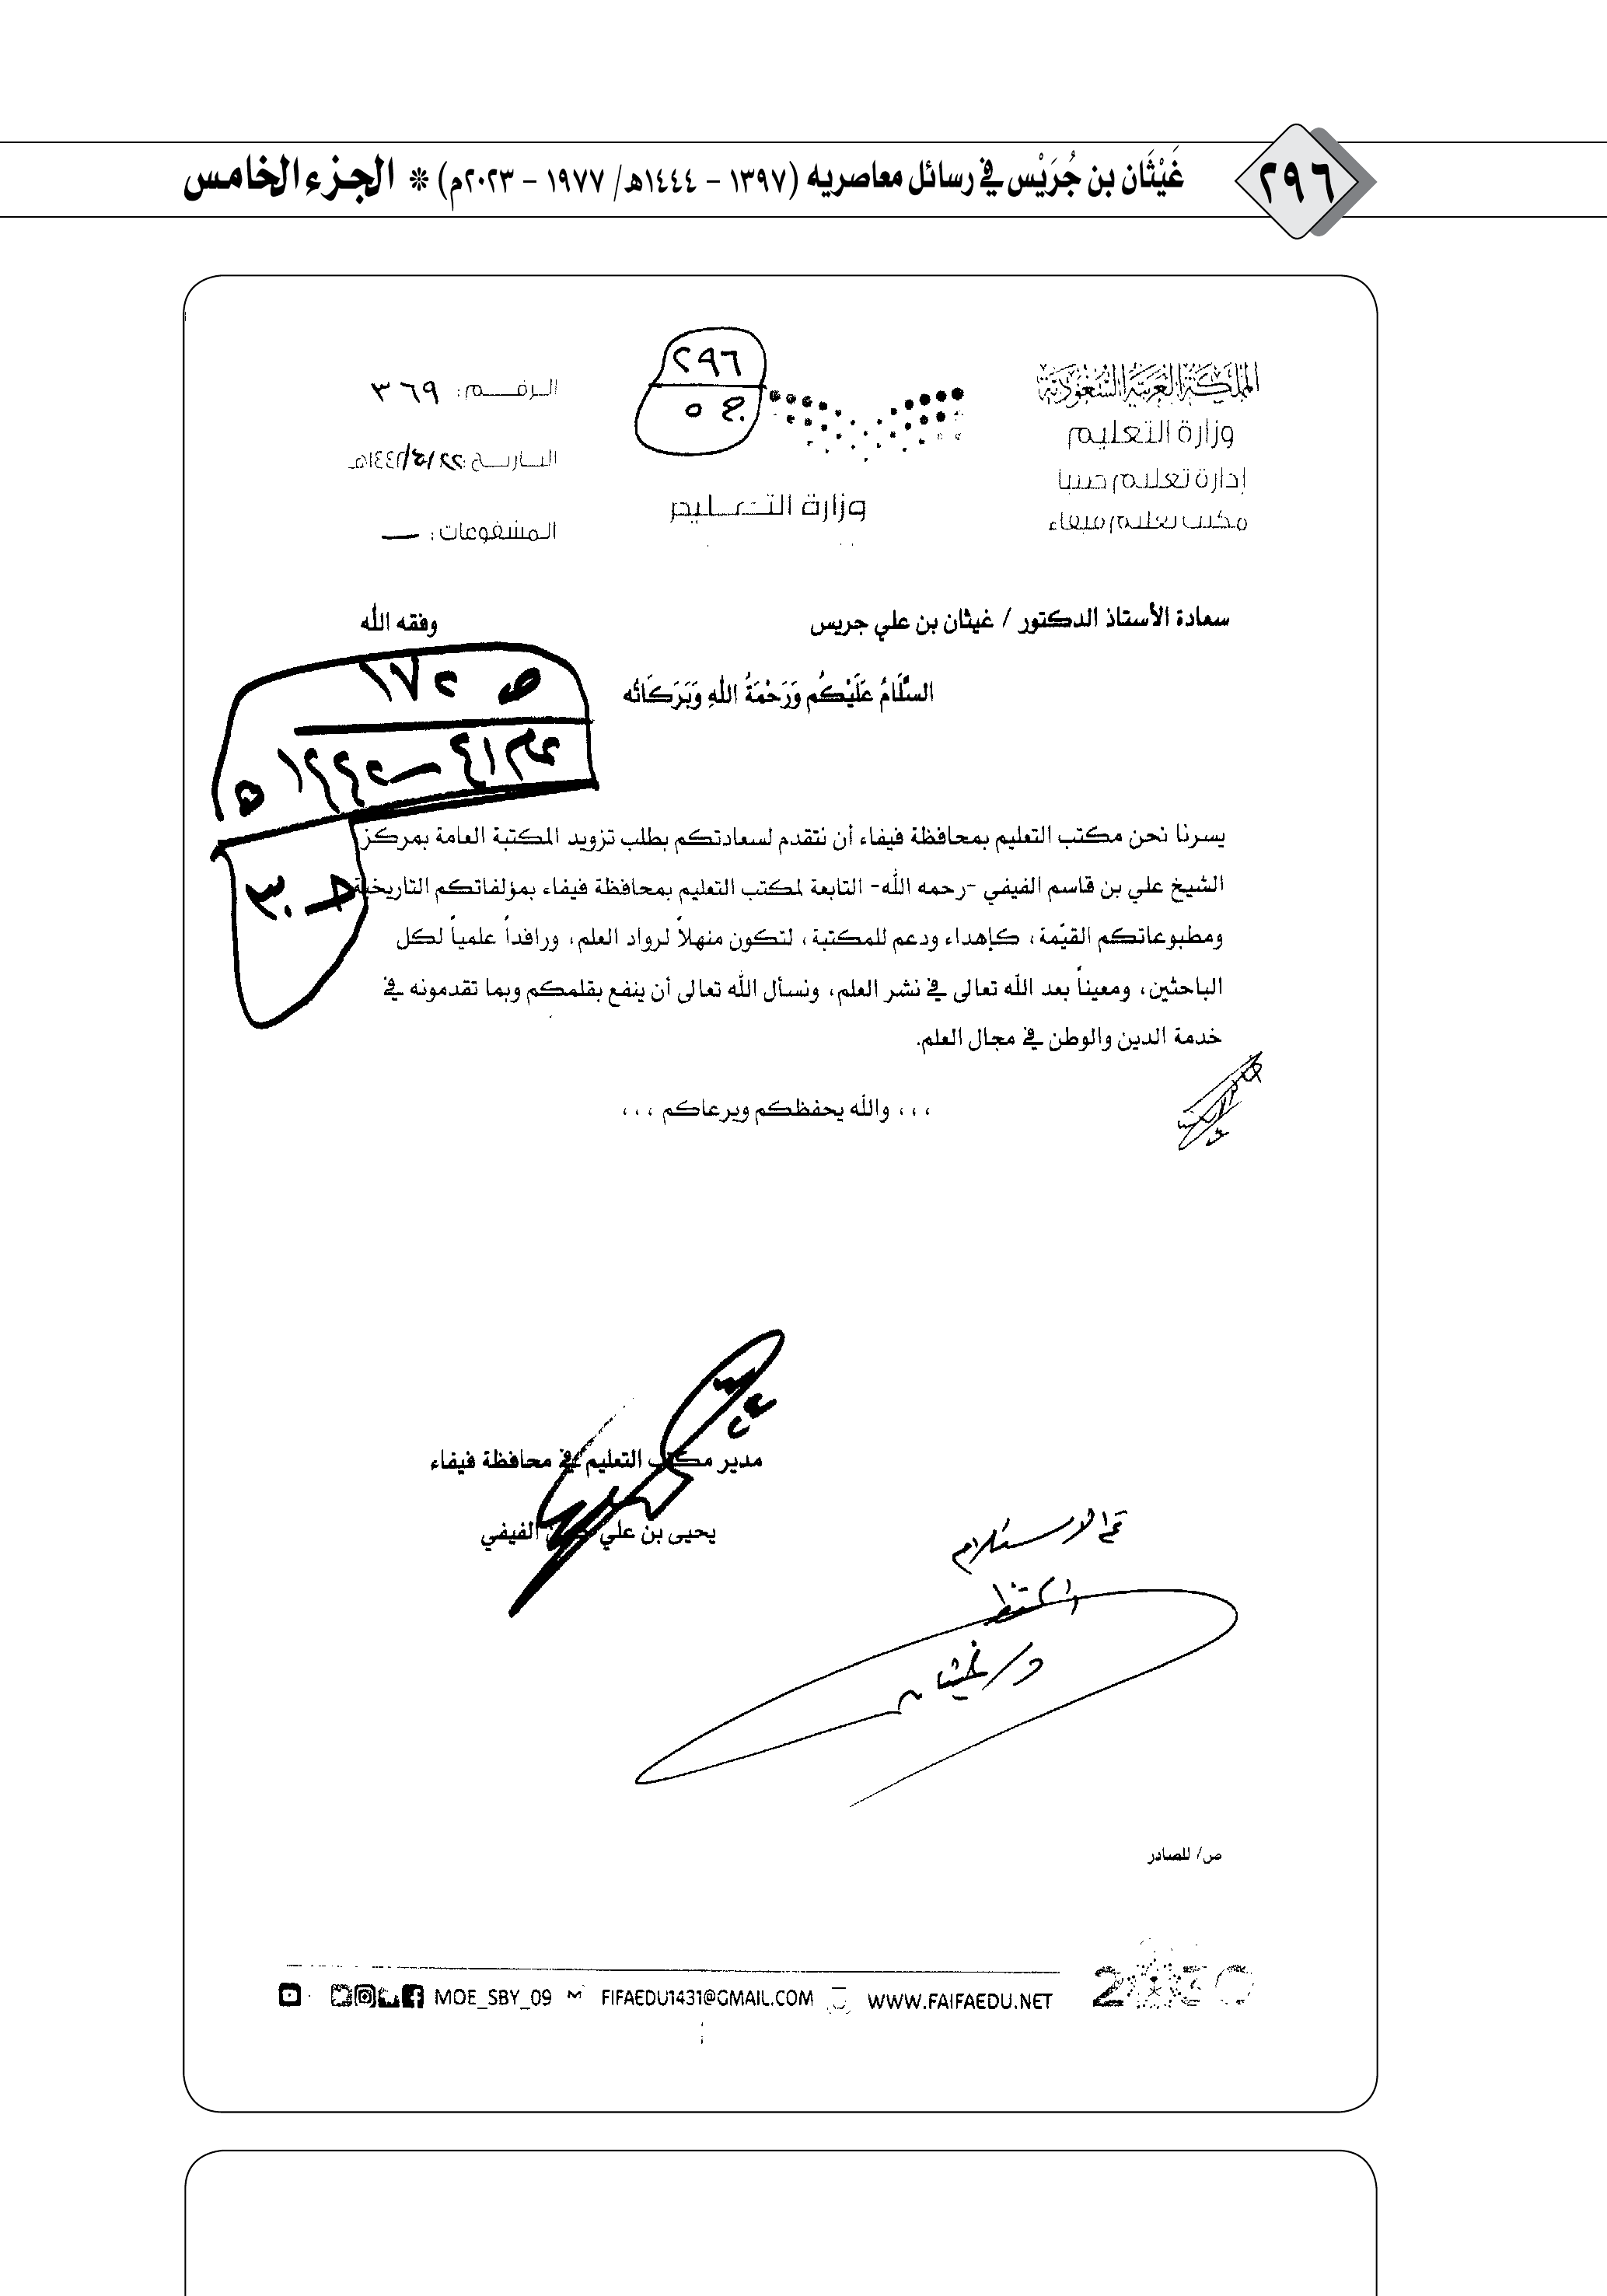 ٢٩٦
غَيْثَان بن جُرَيْس في رسائل معاصريه (١٣٩٧ - ١٤٤٤هـ/ ١٩٧٧ - ٢٠٢٣م) * الجزء الخامس
المملكة العربية السعودية
وزارة التعليم
إدارة تعليم صبيا
مكتب تعليم فيفاء
٢٩٦
ج ٥
وزارة التعليم
الرقم: ٣٦٩
التاريخ:
المشفوعات: —
سعادة الأستاذ الدكتور / غيثان بن علي جريس وفقه الله
السَّلَامُ عَلَيْكُم وَرَحْمَةُ اللهِ وَبَرَكَاتُه
ص ١٧٢
يسرنا نحن مكتب التعليم بمحافظة فيفاء أن نتقدم لسعادتكم بطلب تزويد المكتبة العامة بمركز
الشيخ علي بن قاسم الفيفي -رحمه الله- التابعة لمكتب التعليم بمحافظة فيفاء بمؤلفاتكم التاريخية
ومطبوعاتكم القيّمة، كإهداء ودعم للمكتبة، لتكون منهلاً لرواد العلم، ورافداً علمياً لكل
الباحثين، ومعيناً بعد الله تعالى في نشر العلم، ونسأل الله تعالى أن ينفع بقلمكم وبما تقدمونه في
خدمة الدين والوطن في مجال العلم.
،،، والله يحفظكم ويرعاكم ،،،
مدير مكتب التعليم في محافظة فيفاء
يحيى بن علي الفيفي
تم الاستلام
د/ غيثان
ص/ للصادر
MOE_SBY_09 FIFAEDU1431@GMAIL.COM WWW.FAIFAEDU.NET 2030